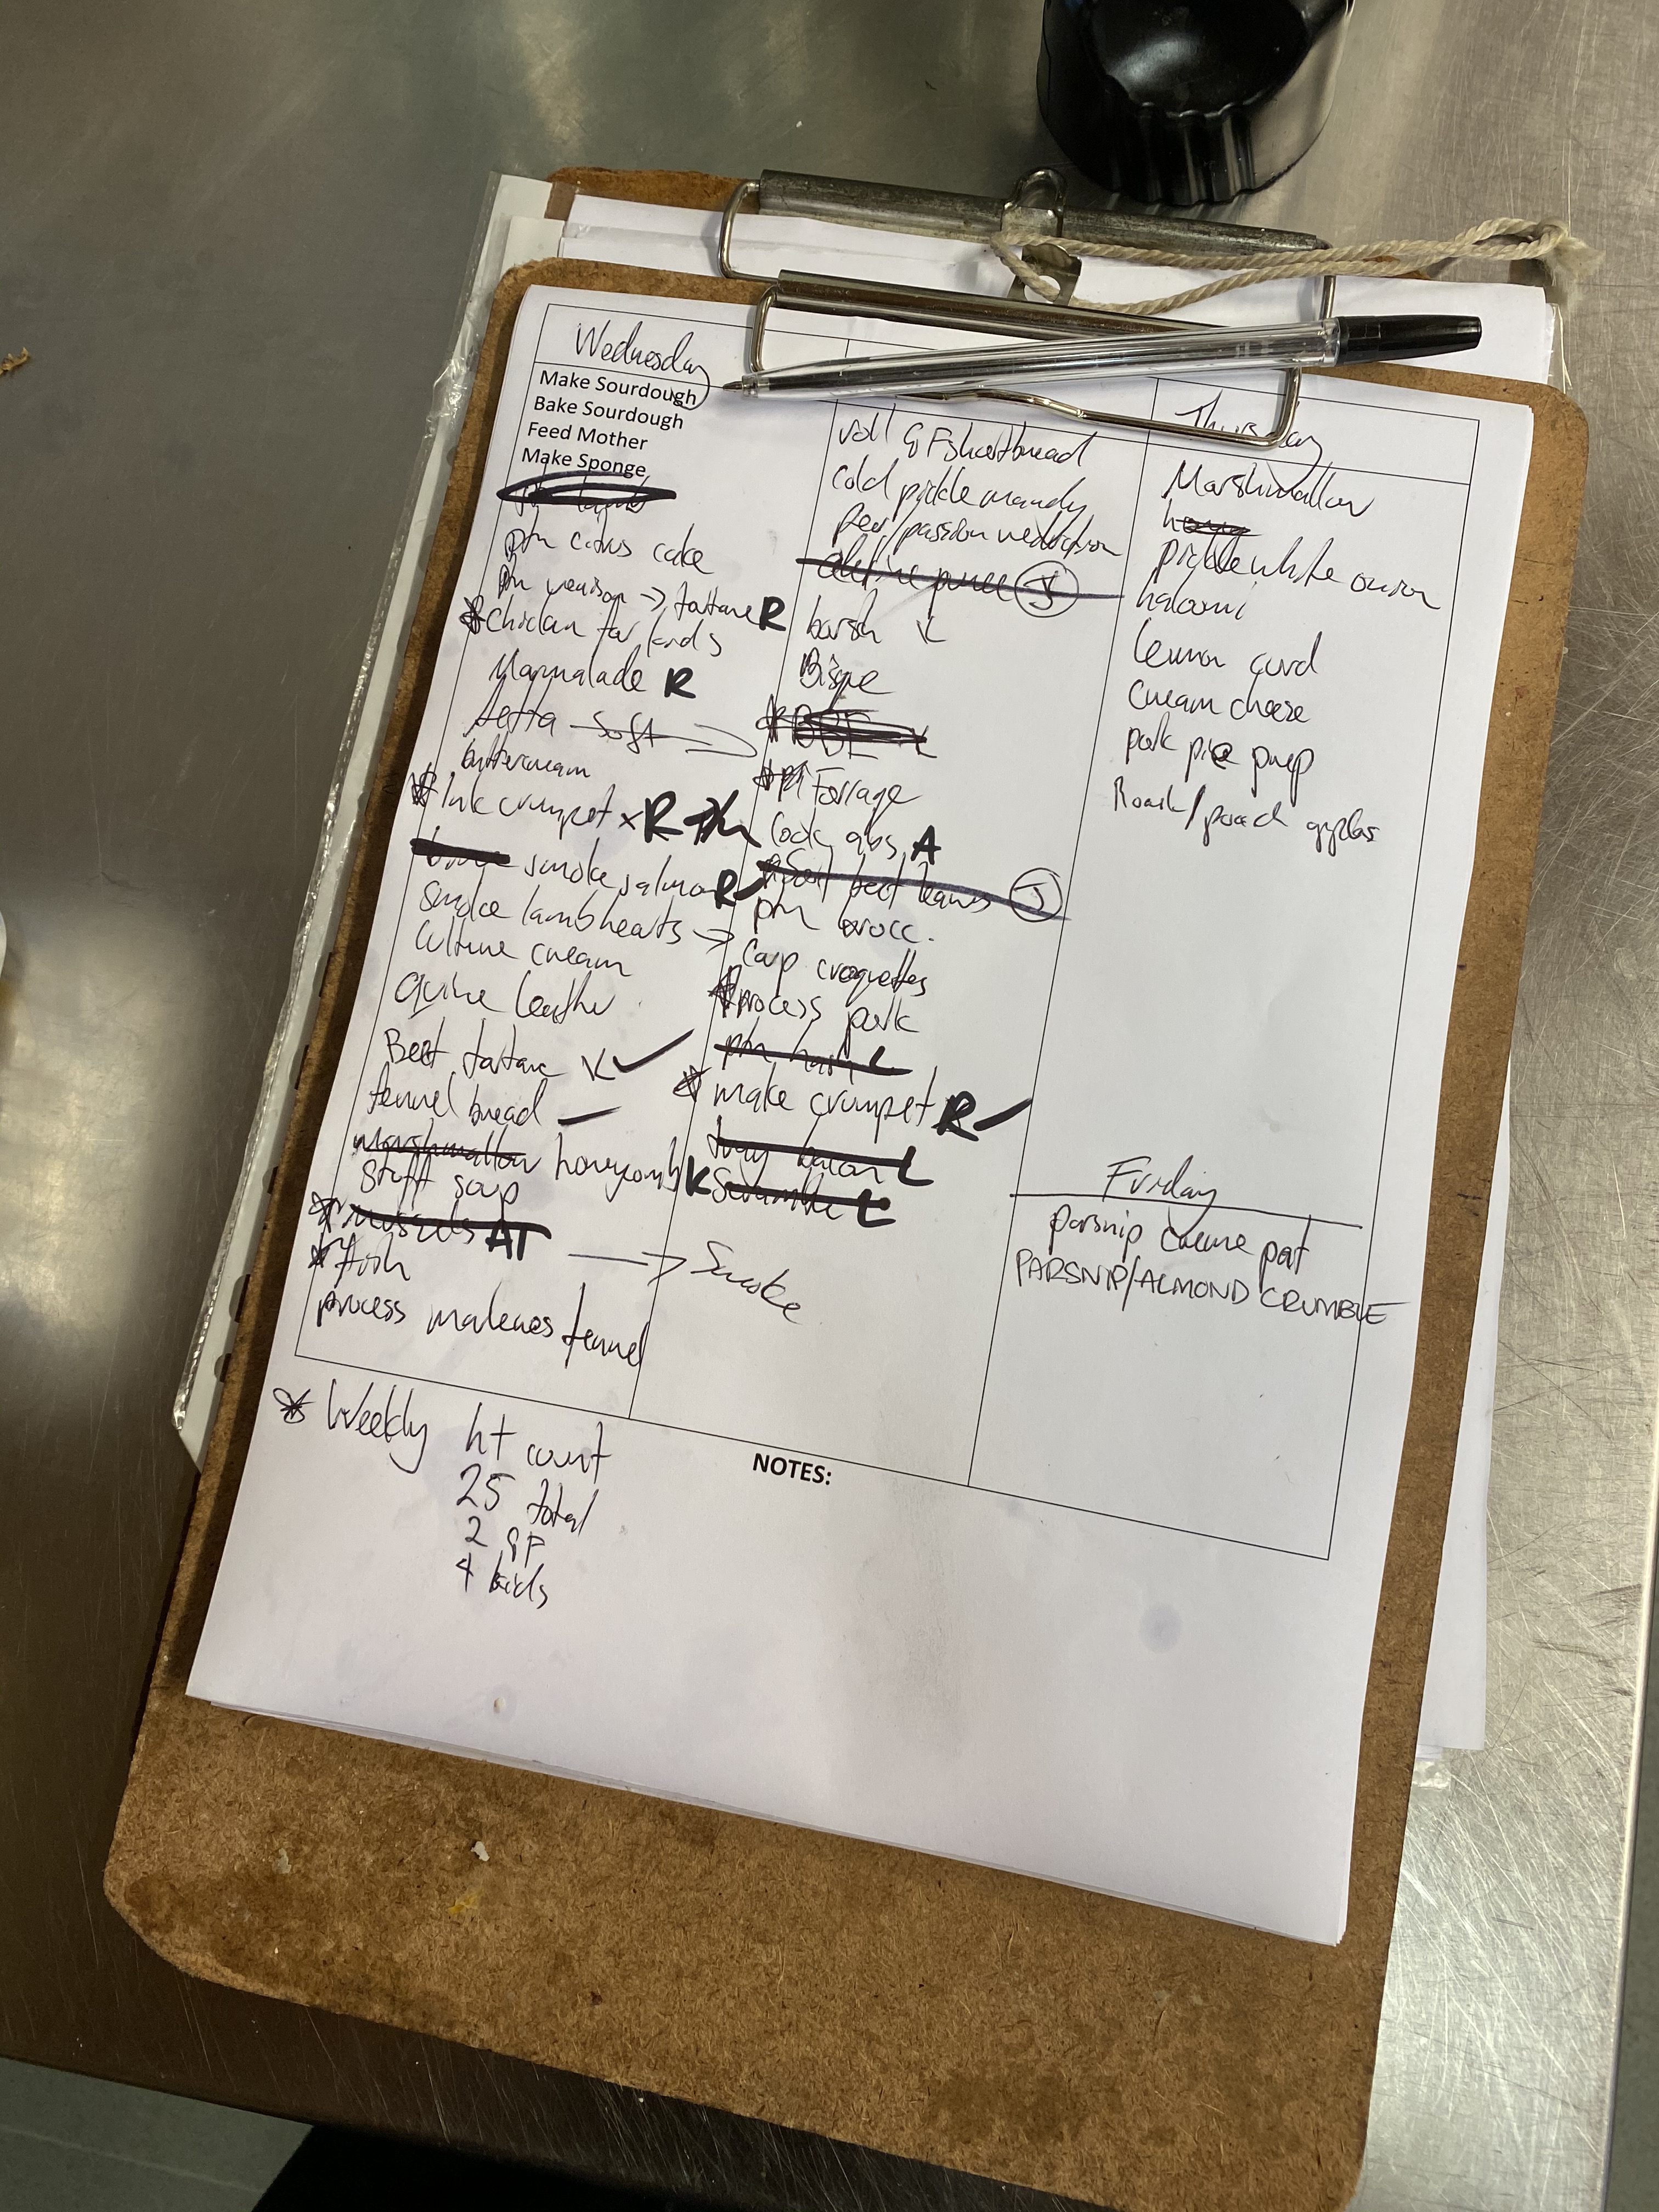 Wednesday
Make Sourdough
Bake Sourdough
Feed Mother
Make Sponge
ptn citrus cake
ptn venison → tartare R
Marmalade R
fetta soft →
buttercream
Ink crumpet x R
smoke salmon R
smoke lamb hearts →
Culture cream
Quince leather
Beet tartare K ✓
fennel bread
Marshmallow honeycomb K
Stuff soup
Mussels AT
fish → Smoke
process fennel
roll GF shortbread
cold pickle
pear/passion
puree J
K
Bisque
Forrage
A
beet leaves J
ptn brocc.
Carp croquettes
process pork
ptn hash L
make crumpet R ✓
bacon L
L
Thursday
Marshmallow
pickle white onion
haloumi
lemon curd
cream cheese
pork pie prep
Friday
parsnip creme pat
PARSNIP/ALMOND CRUMBLE
Weekly ht count
25 total
2 GF
4 kids
NOTES: